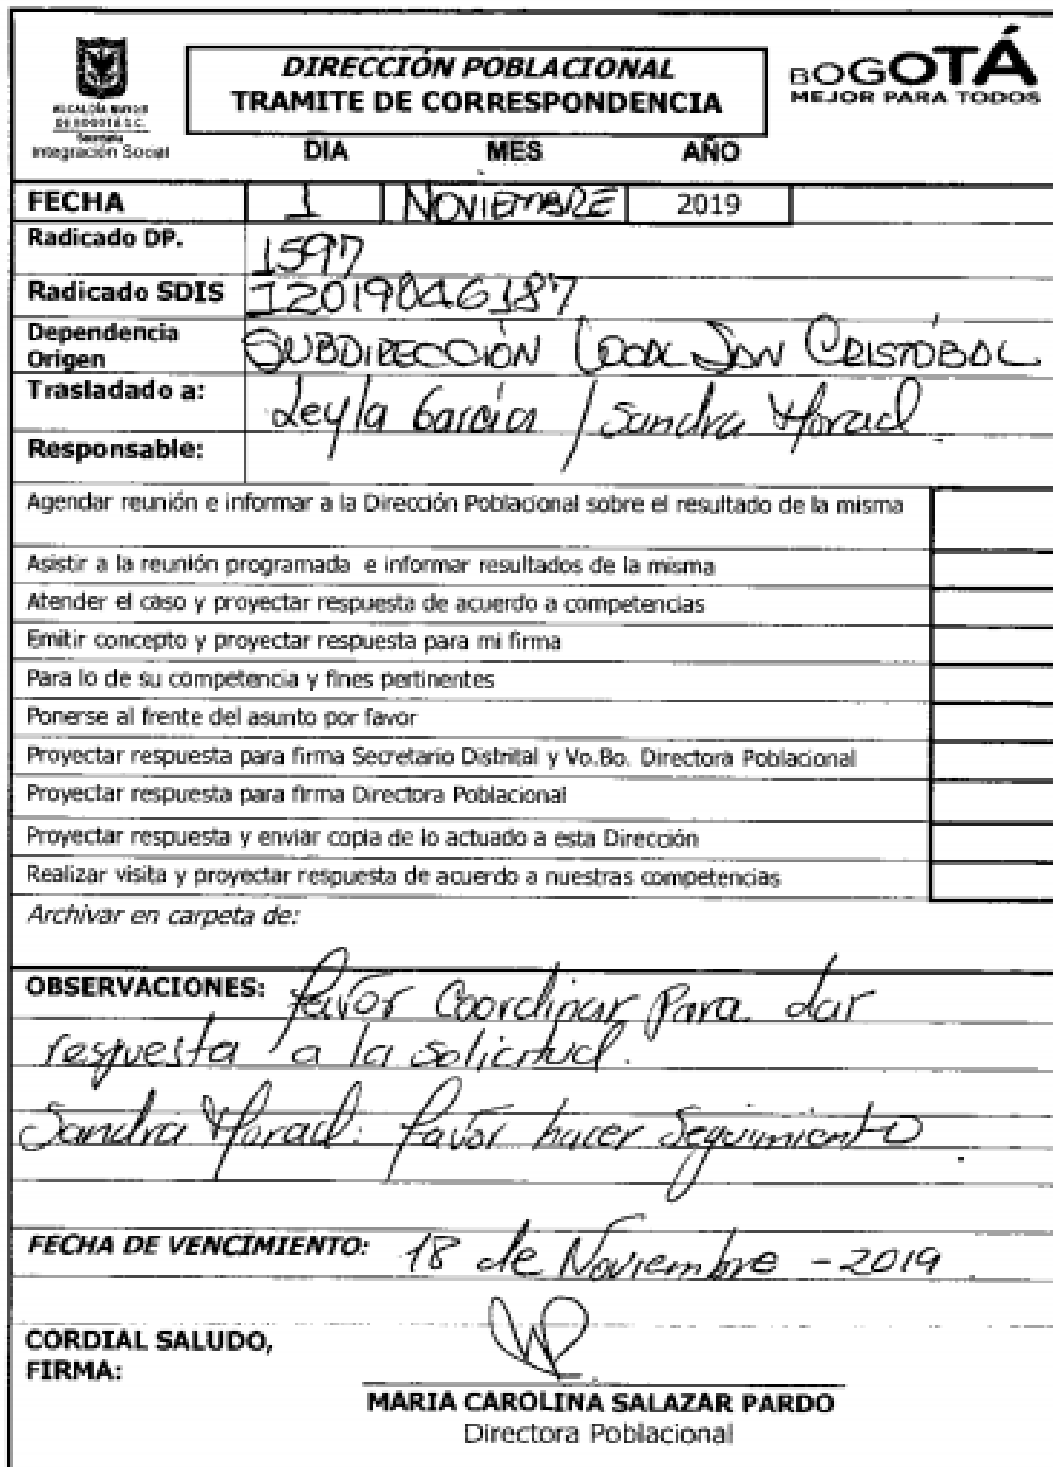 ALCALDÍA MAYOR
DE BOGOTÁ D.C.
Secretaría
Integración Social
DIRECCIÓN POBLACIONAL
TRAMITE DE CORRESPONDENCIA
BOGOTÁ
MEJOR PARA TODOS
DIA MES AÑO
FECHA 1 NOVIEMBRE 2019
Radicado DP. 1597
Radicado SDIS I2019046187
Dependencia
Origen SUBDIRECCIÓN LOCAL SAN CRISTÓBAL
Trasladado a: Leyla García / Sandra Morad.
Responsable:
Agendar reunión e informar a la Dirección Poblacional sobre el resultado de la misma
Asistir a la reunión programada e informar resultados de la misma
Atender el caso y proyectar respuesta de acuerdo a competencias
Emitir concepto y proyectar respuesta para mi firma
Para lo de su competencia y fines pertinentes
Ponerse al frente del asunto por favor
Proyectar respuesta para firma Secretario Distrital y Vo.Bo. Directora Poblacional
Proyectar respuesta para firma Directora Poblacional
Proyectar respuesta y enviar copia de lo actuado a esta Dirección
Realizar visita y proyectar respuesta de acuerdo a nuestras competencias
Archivar en carpeta de:
OBSERVACIONES: favor Coordinar Para dar
respuesta a la solicitud.
Sandra Morad: favor hacer seguimiento.
FECHA DE VENCIMIENTO: 18 de Noviembre - 2019
CORDIAL SALUDO,
FIRMA:
MARIA CAROLINA SALAZAR PARDO
Directora Poblacional